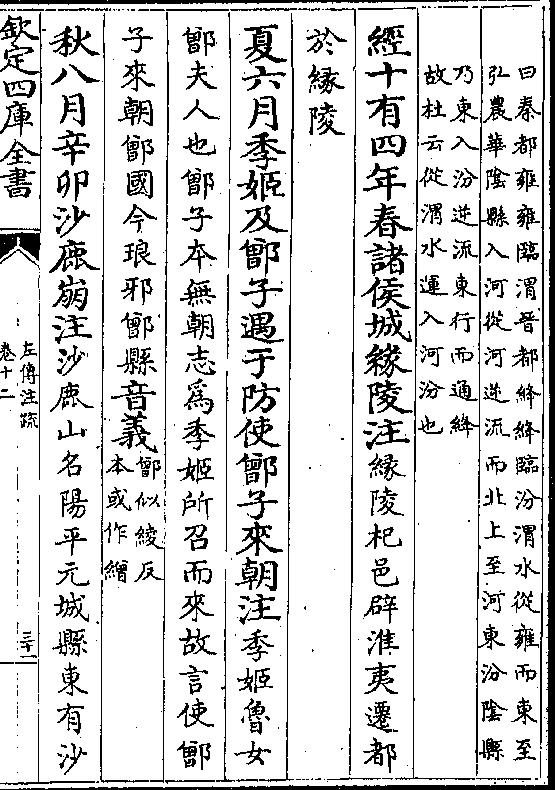 曰秦都雍雍臨渭晉都絳絳臨汾渭水從雍而東至
弘農華隂縣入河從河逆流而北上至河東汾隂縣
乃東入汾逆流東行而通絳
故杜云從渭水運入河汾也
經十有四年春諸侯城緣陵注緣陵杞邑辟淮夷遷都
於緣陵
夏六月季姬及鄫子遇于防使鄫子來朝注季姬魯女
鄫夫人也鄫子本無朝志為季姬所召而來故言使鄫
子來朝鄫國今琅邪鄫縣音義鄫似綾反
本或作繒
秋八月辛卯沙鹿崩注沙鹿山名陽平元城縣東有沙
欽定四庫全書
左傳注疏
卷十二
三十一